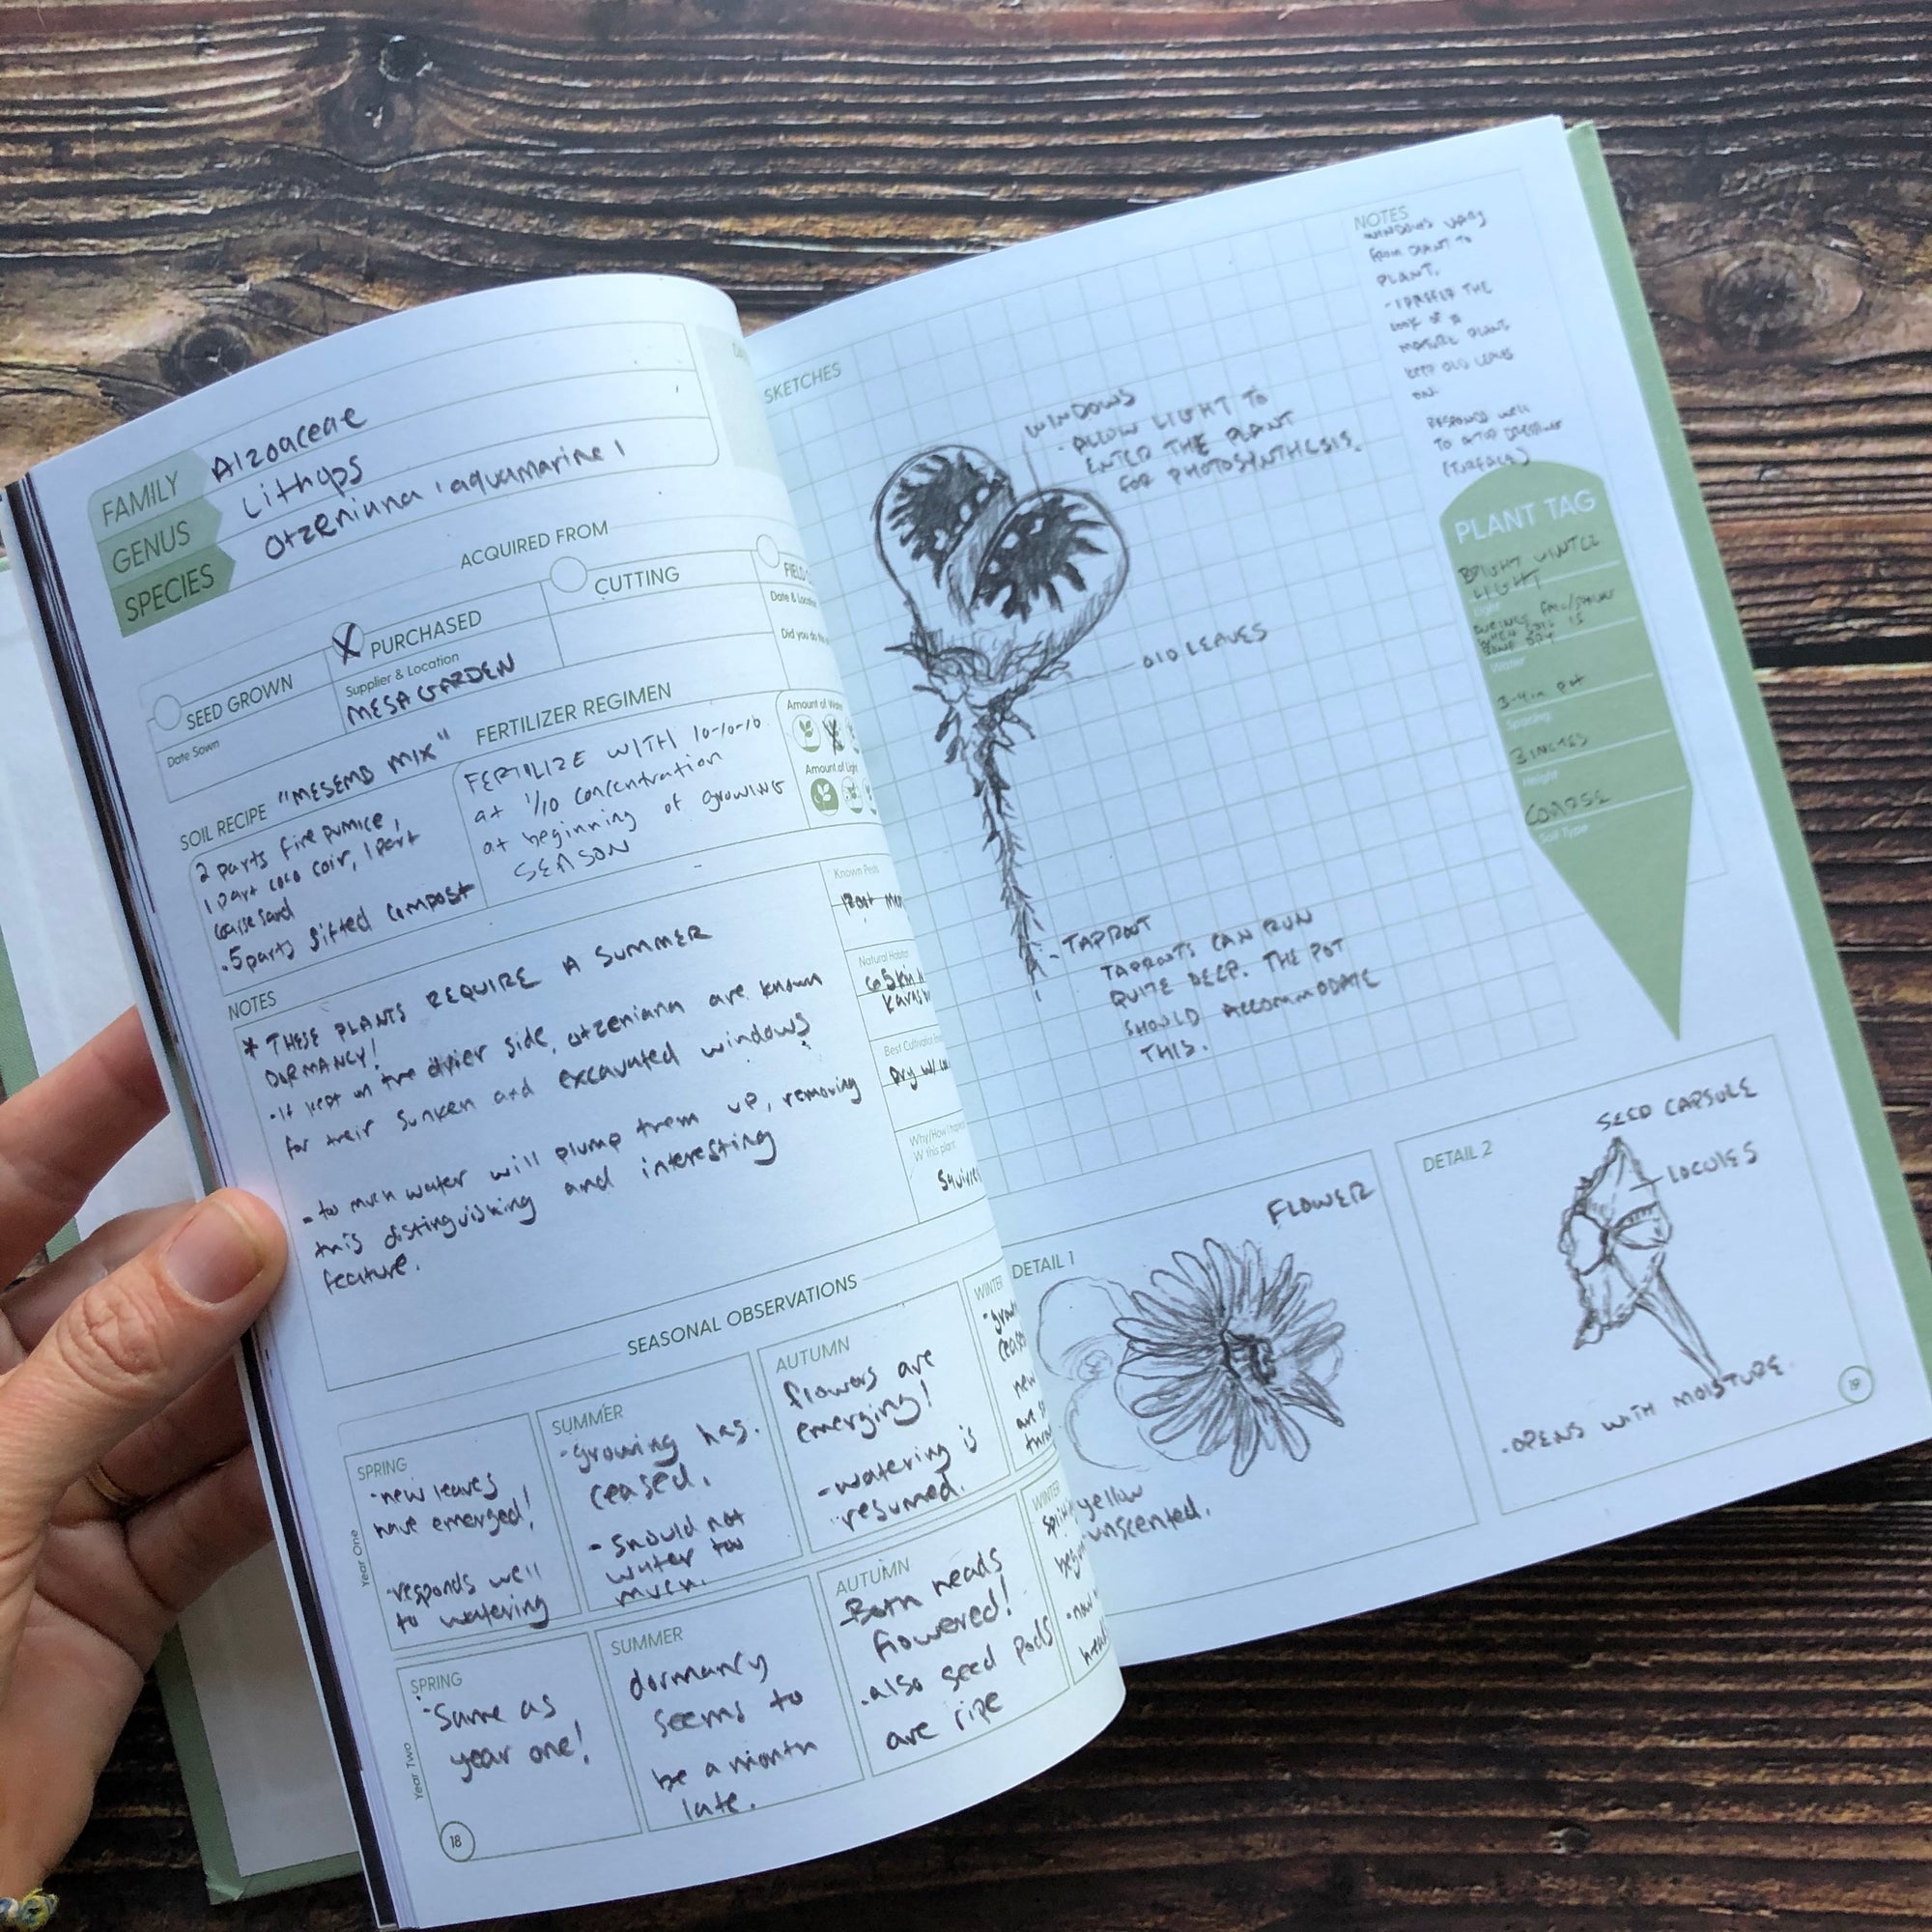 FAMILY Aizoaceae
GENUS Lithops
SPECIES Otzeniana 'aquamarine'
ACQUIRED FROM
SEED GROWN
Date Sown
X PURCHASED
Supplier & Location
MESA GARDEN
CUTTING
FIELD
Date & Locatio
Did you do th
SOIL RECIPE "MESEMB MIX"
2 parts fine pumice,
1 part coco coir, 1 part
coarse sand
.5 parts sifted compost
FERTILIZER REGIMEN
FERTILIZE WITH 10-10-10
at 1/10 concentration
at beginning of growing
SEASON
Amount of Wate
Amount of Light
NOTES
* THESE PLANTS REQUIRE A SUMMER
DORMANCY!
- If kept on the drier side, otzeniana are known
for their sunken and excavated windows
- to much water will plump them up, removing
this distinguishing and interesting
feature.
Known Pests
Natural Habitat
65km
Best Cultivation
Dry w/
Why/How I
W this plant
Squirre
SEASONAL OBSERVATIONS
Year One
SPRING
- new leaves
have emerged!
- responds well
to watering
SUMMER
- growing has
ceased.
- should not
water too
much.
AUTUMN
flowers are
emerging!
- watering is
resumed.
WINTER
new
Year Two
SPRING
- Same as
year one!
SUMMER
dormancy
seems to
be a month
late.
AUTUMN
- Both heads
flowered!
- also seed pods
are ripe
WINTER
18
SKETCHES
WINDOWS
- ALLOW LIGHT TO
ENTER THE PLANT
FOR PHOTOSYNTHESIS.
OLD LEAVES
- TAPROOT
TAPROOTS CAN RUN
QUITE DEEP. THE POT
SHOULD ACCOMMODATE
THIS.
NOTES
WINDOWS VARY
FROM PLANT TO
PLANT.
- I PREFER THE
LOOK OF A
MATURE PLANT
KEEP OLD LEAVES
ON.
RESPONDS WELL
TO A TOP DRESSING
(TURFACE)
PLANT TAG
BRIGHT WINTER
LIGHT
Light
WHEN SOIL IS
BONE DRY
Water
3-4 in
Spacing
3 INCHES
Height
COARSE
Soil Type
DETAIL 1
FLOWER
yellow
unscented.
DETAIL 2
SEED CAPSULE
LOCULES
- OPENS WITH MOISTURE.
19